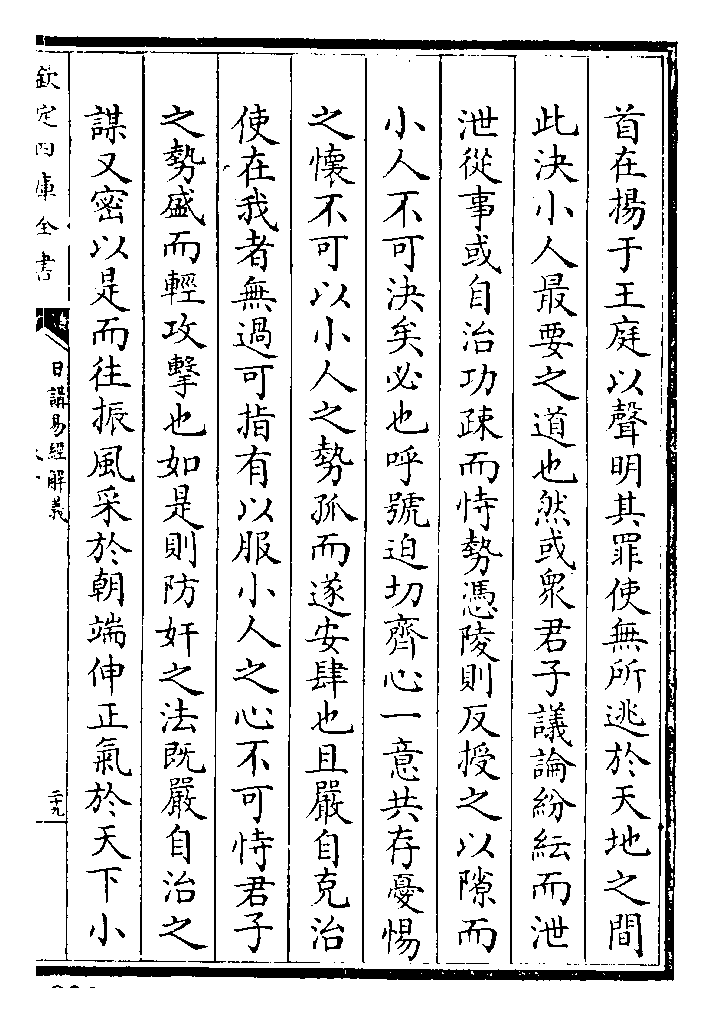 首在揚于王庭以聲明其罪使無所逃於天地之間
此決小人最要之道也然或衆君子議論紛紜而泄
泄從事或自治功疎而恃勢憑陵則反授之以隙而
小人不可決矣必也呼號迫切齊心一意共存憂惕
之懷不可以小人之勢孤而遂安肆也且嚴自克治
使在我者無過可指有以服小人之心不可恃君子
之勢盛而輕攻擊也如是則防奸之法既嚴自治之
謀又密以是而往振風采於朝端伸正氣於天下小
欽定四庫全書
日講易經解義
二十九